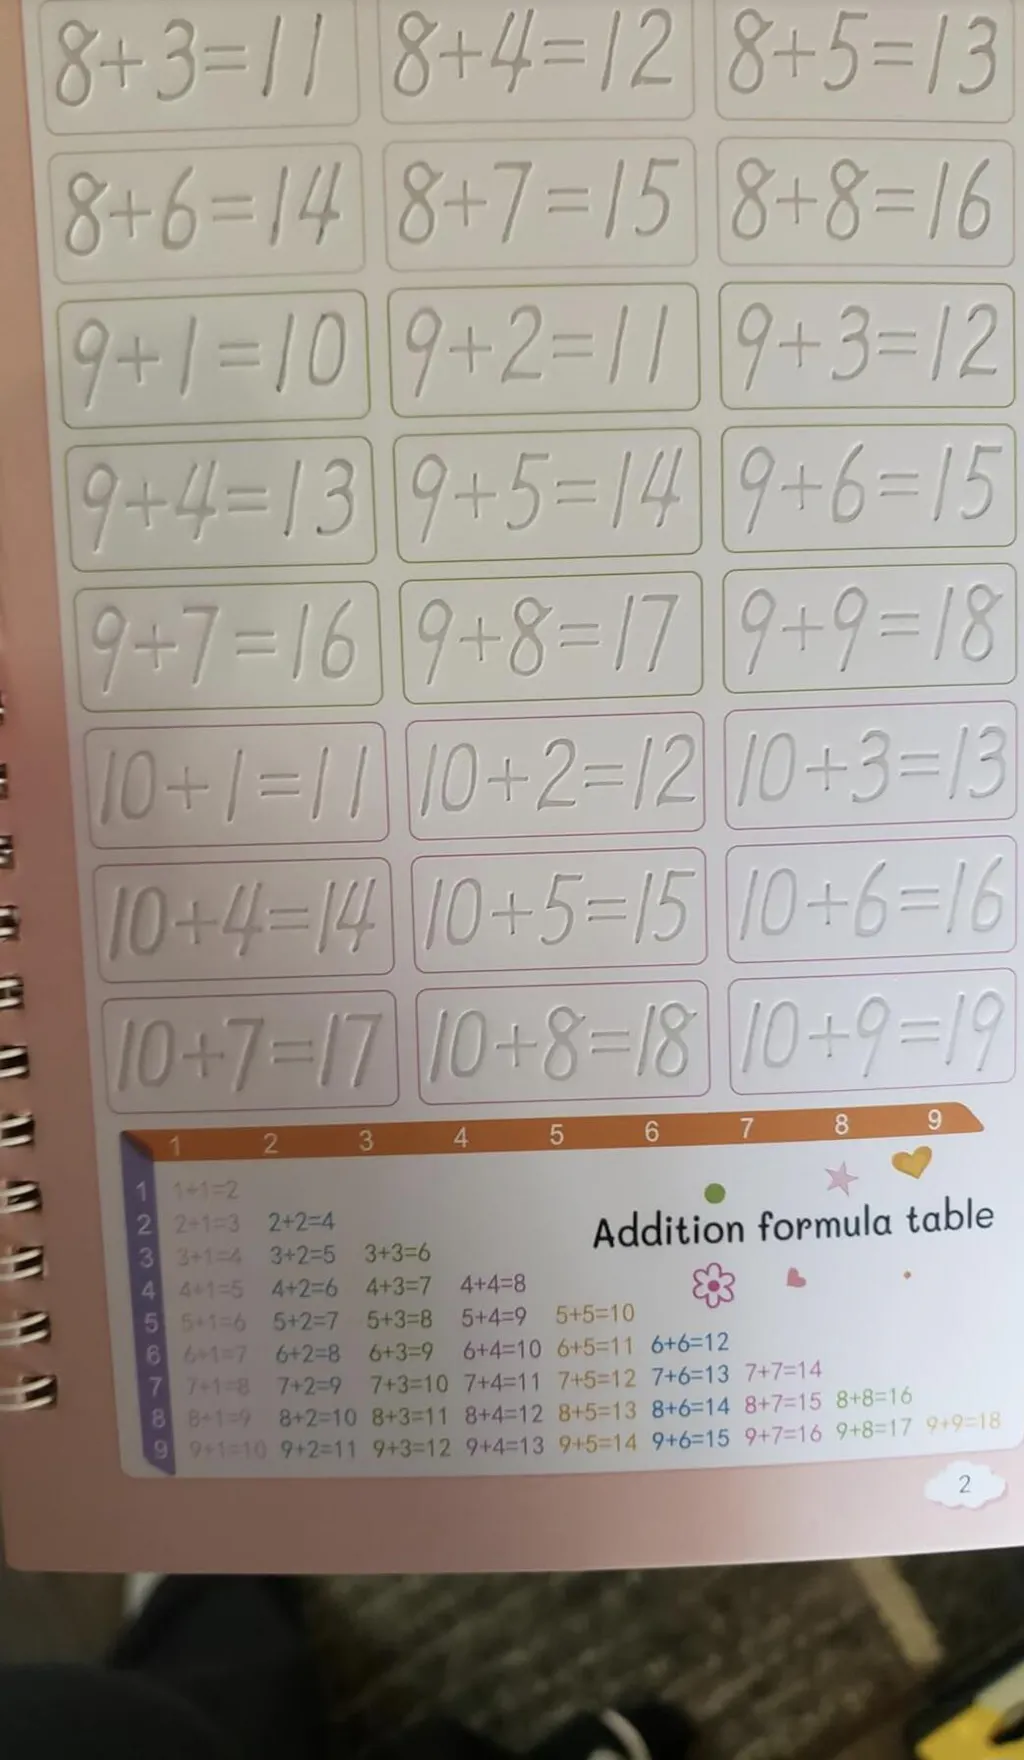 8+3=11 8+4=12 8+5=13
8+6=14 8+7=15 8+8=16
9+1=10 9+2=11 9+3=12
9+4=13 9+5=14 9+6=15
9+7=16 9+8=17 9+9=18
10+1=11 10+2=12 10+3=13
10+4=14 10+5=15 10+6=16
10+7=17 10+8=18 10+9=19
1 2 3 4 5 6 7 8 9
1 1+1=2
Addition formula table
2 2+1=3 2+2=4
3 3+1=4 3+2=5 3+3=6
4 4+1=5 4+2=6 4+3=7 4+4=8
5 5+1=6 5+2=7 5+3=8 5+4=9 5+5=10
6 6+1=7 6+2=8 6+3=9 6+4=10 6+5=11 6+6=12
7 7+1=8 7+2=9 7+3=10 7+4=11 7+5=12 7+6=13 7+7=14
8 8+1=9 8+2=10 8+3=11 8+4=12 8+5=13 8+6=14 8+7=15 8+8=16
9 9+1=10 9+2=11 9+3=12 9+4=13 9+5=14 9+6=15 9+7=16 9+8=17 9+9=18
2